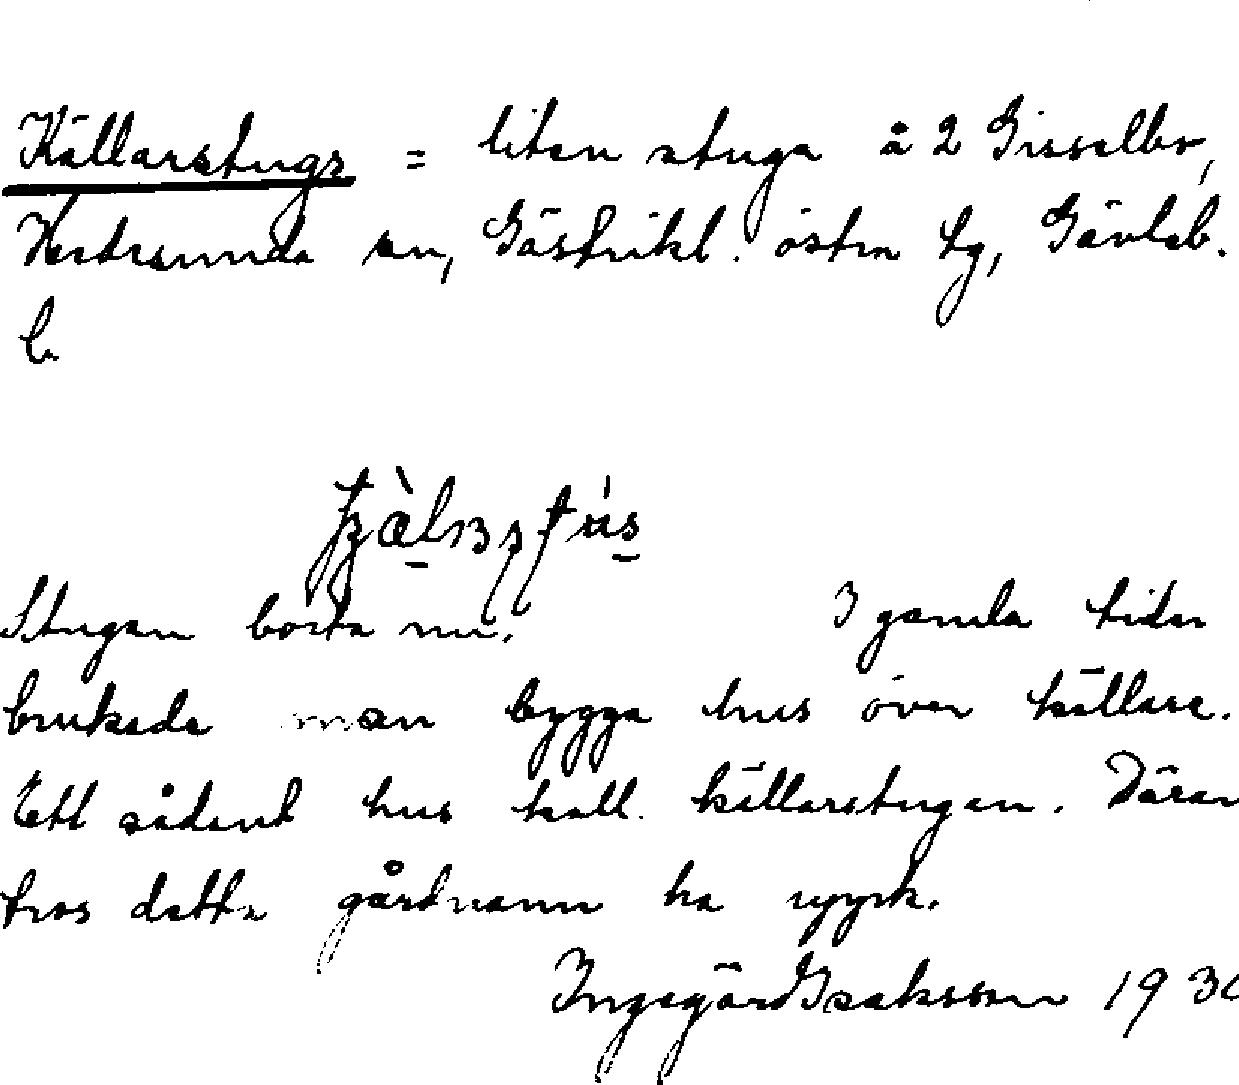 Källarstuga = liten stuga å 2 Gisselbo,
Hedesunda sn, Gästrikl. östra tg, Gävleb.
l.
Stugan borta nu. I gamla tider
brukade man bygga hus över källare.
Ett sådant hus kall. källarstugan. Därav
tros detta gårdnamn ha uppk.
Ingegärd Isaksson 1930